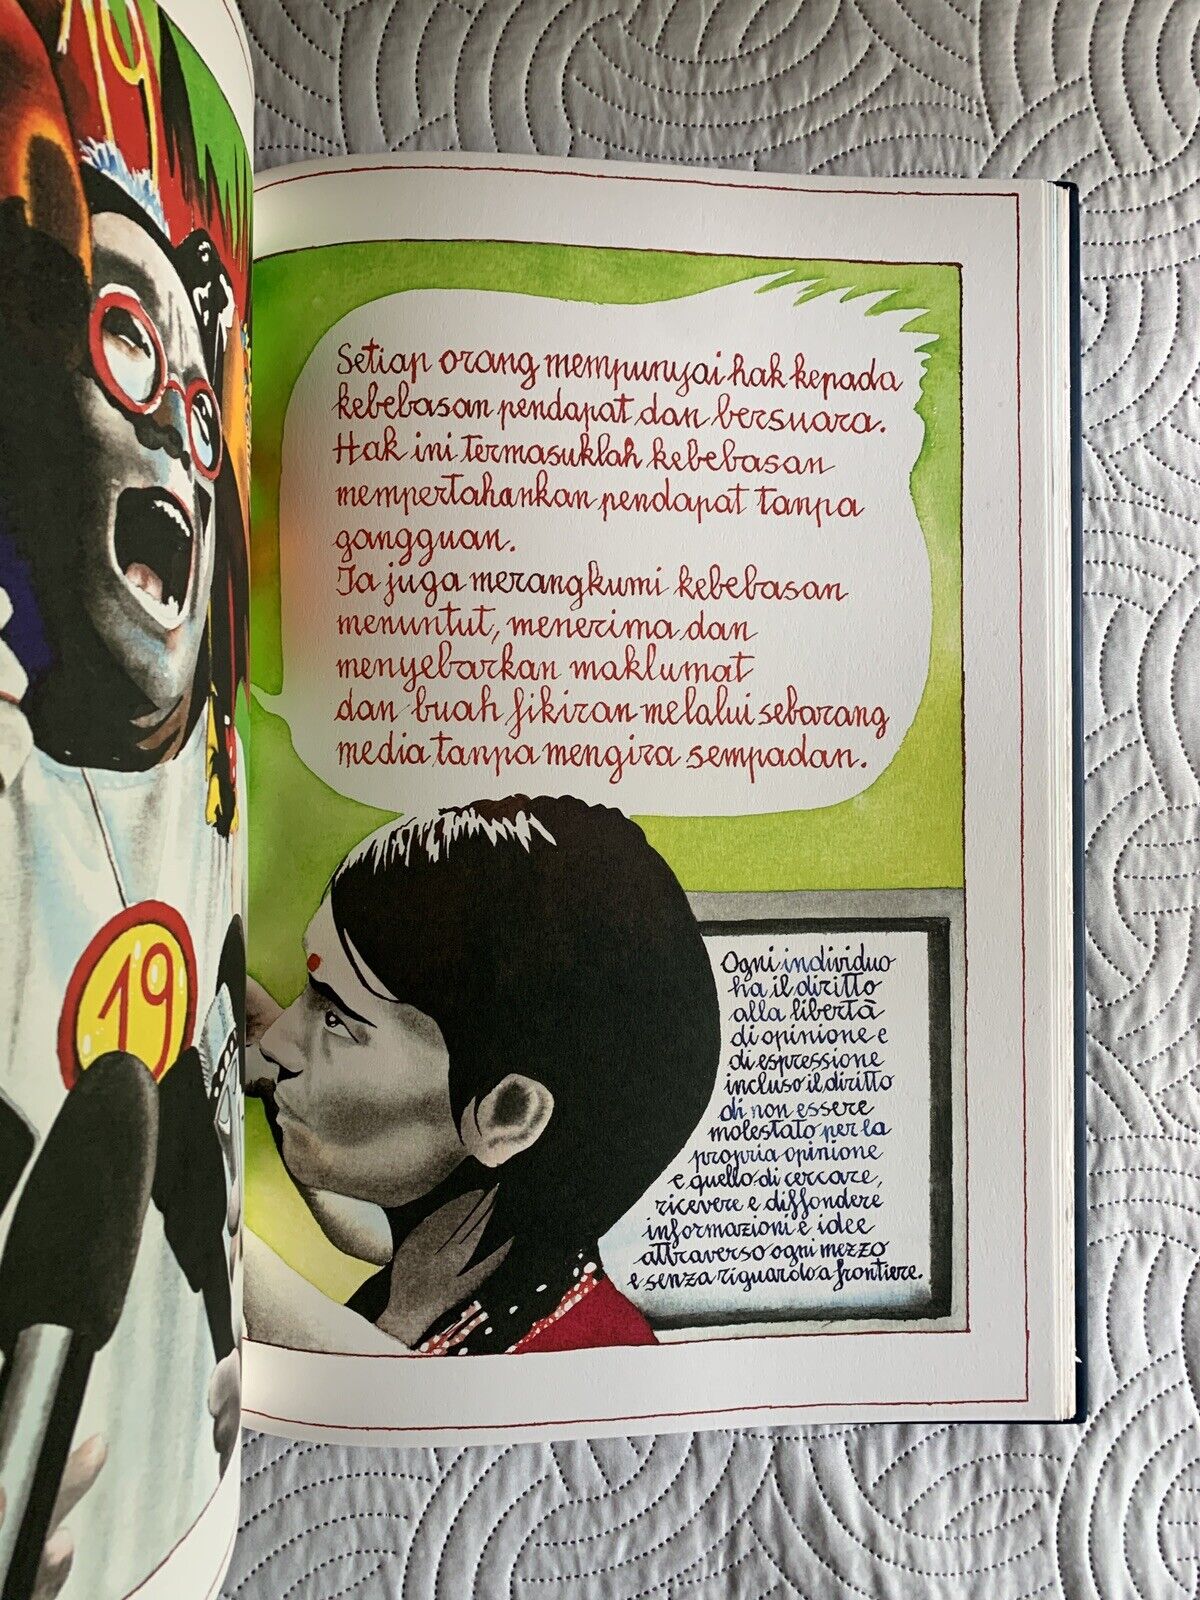 19
19
Setiap orang mempunyai hak kepada
kebebasan pendapat dan bersuara.
Hak ini termasuklah kebebasan
mempertahankan pendapat tanpa
gangguan.
Ia juga merangkumi kebebasan
menuntut, menerima dan
menyebarkan maklumat
dan buah fikiran melalui sebarang
media tanpa mengira sempadan.
Ogni individuo
ha il diritto
alla libertà
di opinione e
di espressione
incluso il diritto
di non essere
molestato per la
propria opinione
e quello di cercare,
ricevere e diffondere
informazioni e idee
attraverso ogni mezzo
e senza riguardo a frontiere.